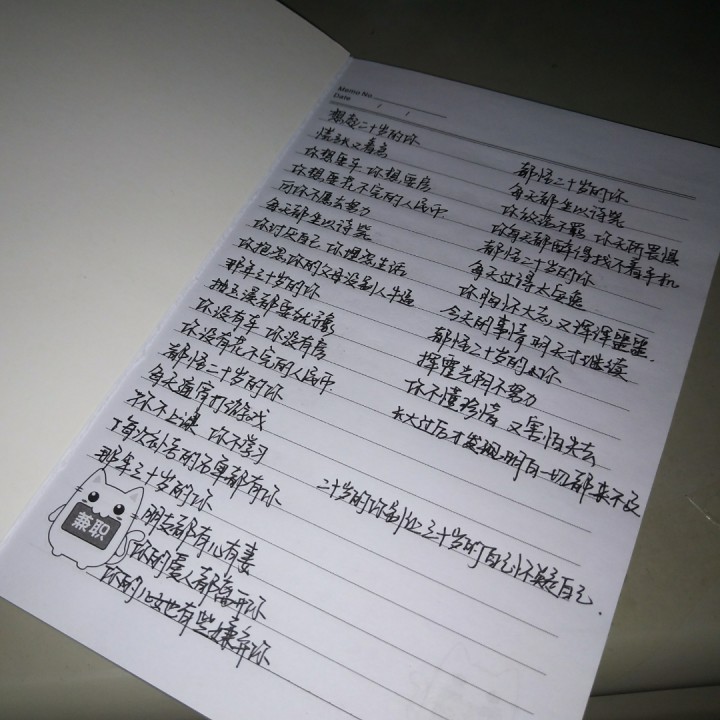 Memo No.
Date / /
想想二十岁的你
慌张又着急
你想要车 你想要房
你想要花不完的人民币
可你不愿去努力
每天都坐以待毙
你讨厌自己 你想怨生活
你抱怨你的父母没别人牛逼
那年三十岁的你
拖五溪都要犹豫
你没有车 你没有房
你没有花不完的人民币
都怪二十岁的你
每天通宵打游戏
你不上课 你不学习
每次补考的名单都有你
那年三十岁的你
朋友都有儿有妻
你的爱人都离开你
你的儿女也有些嫌弃你
都怪二十岁的你
每天都坐以待毙
你放荡不羁 你无所畏惧
你每天都醉得找不着手机
都怪二十岁的你
每天过得太安逸
你胸怀大志 又挥挥噩噩
今天的事情 明天才继续
都怪二十岁的你
挥霍光阴不努力
你不懂珍惜 又害怕失去
长大过后才发现 明白一切都来不及
二十岁的你别让三十岁的自己怀疑自己.
兼职